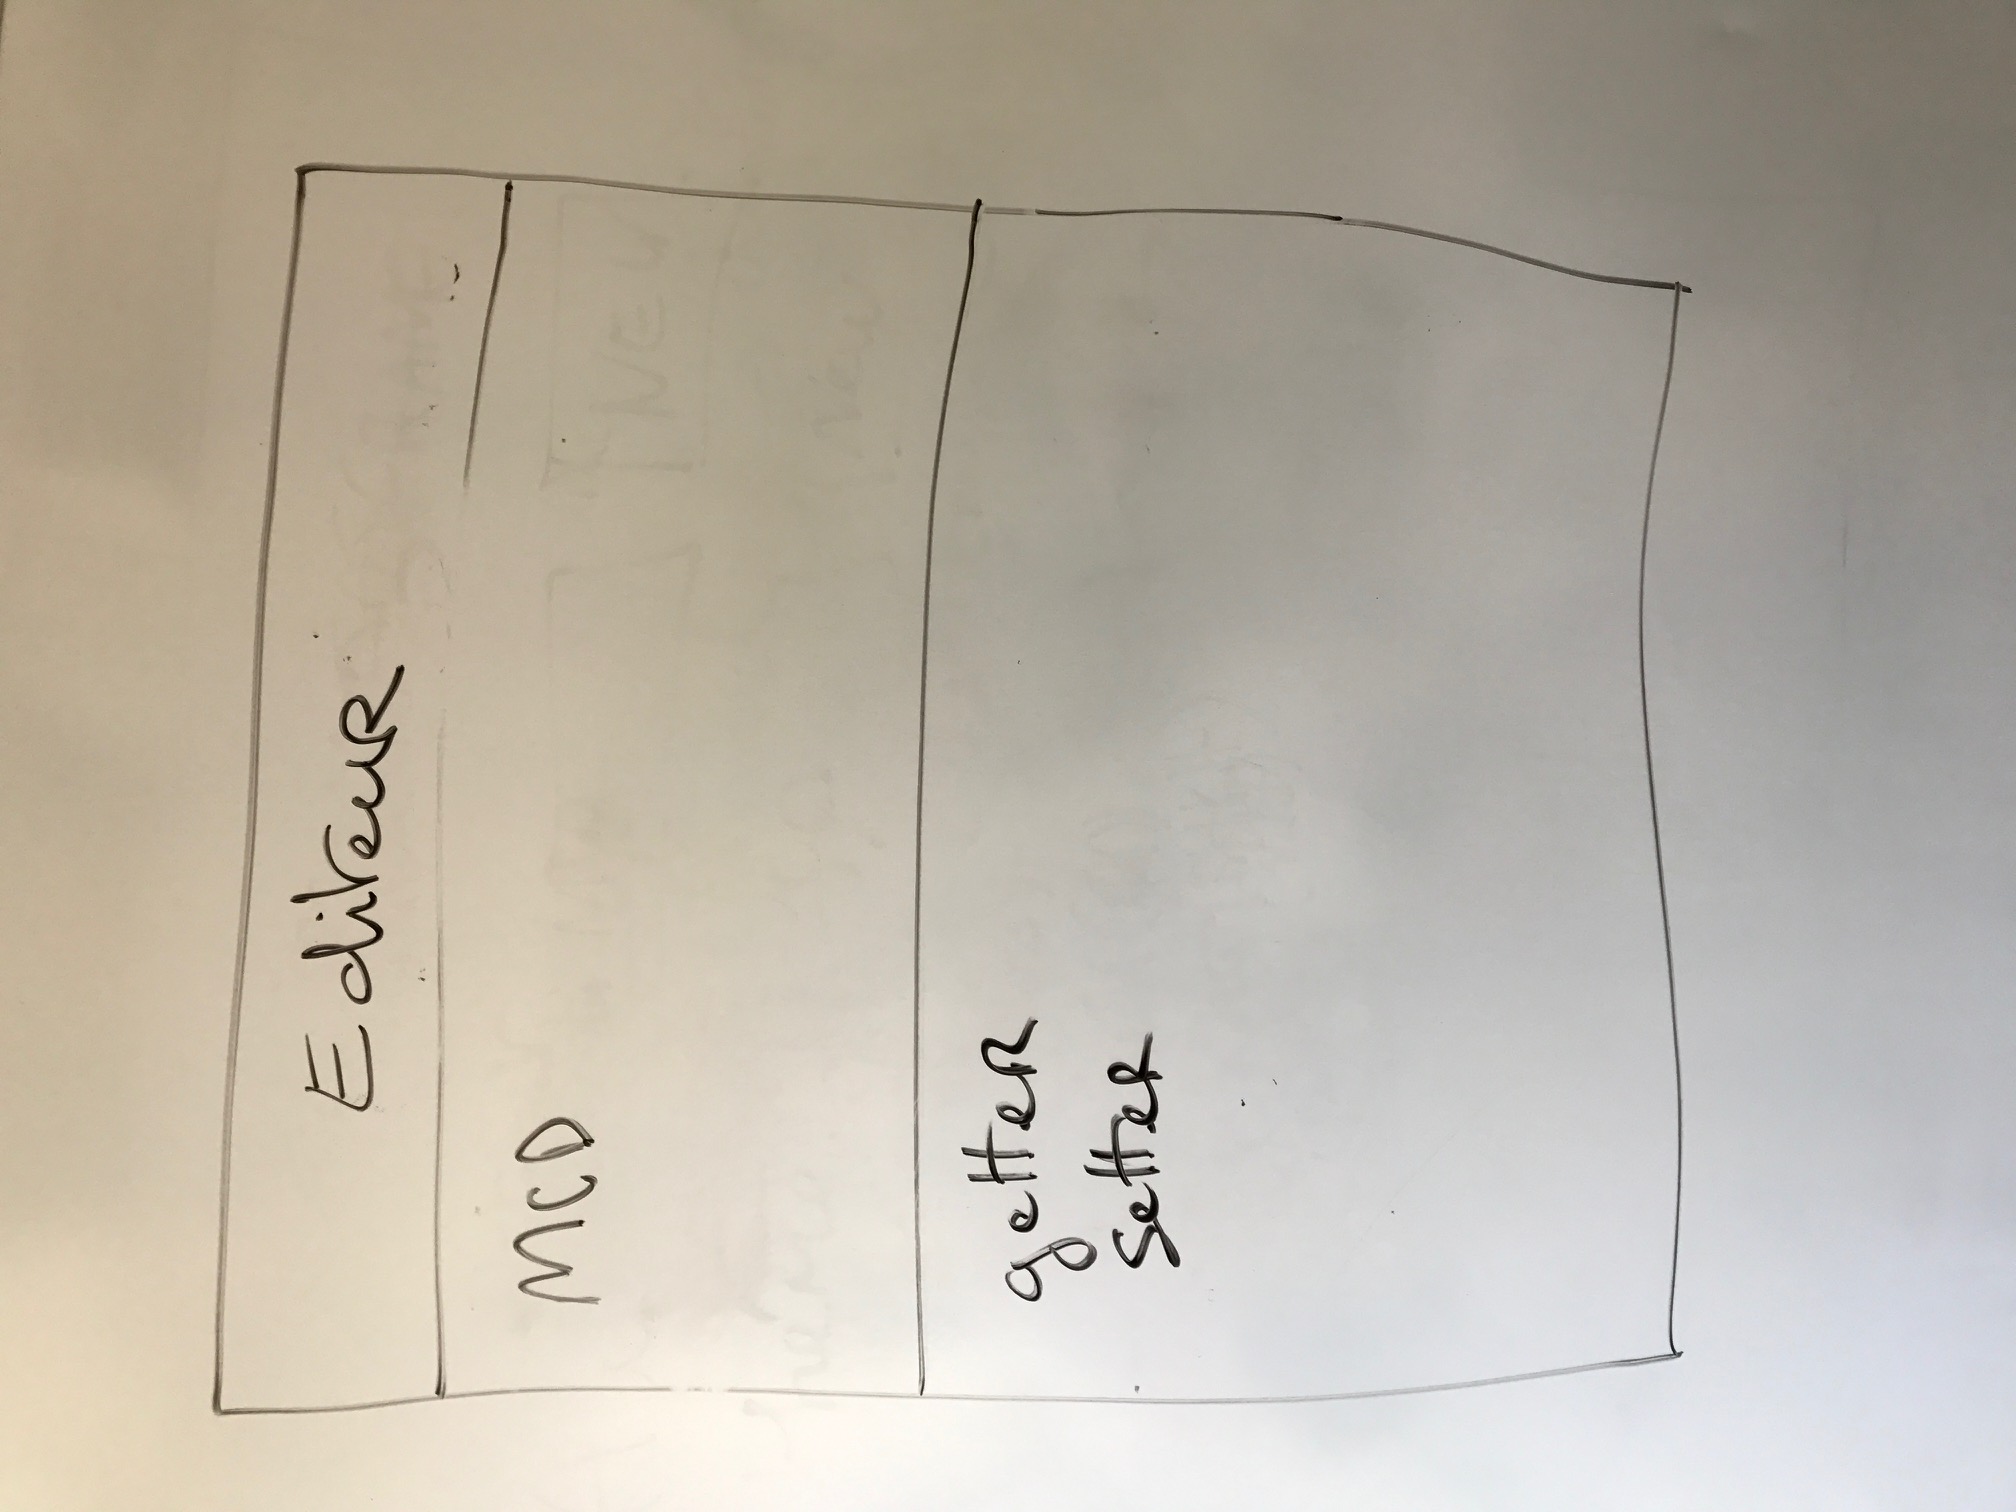 Editeur
MCD
getter
setter